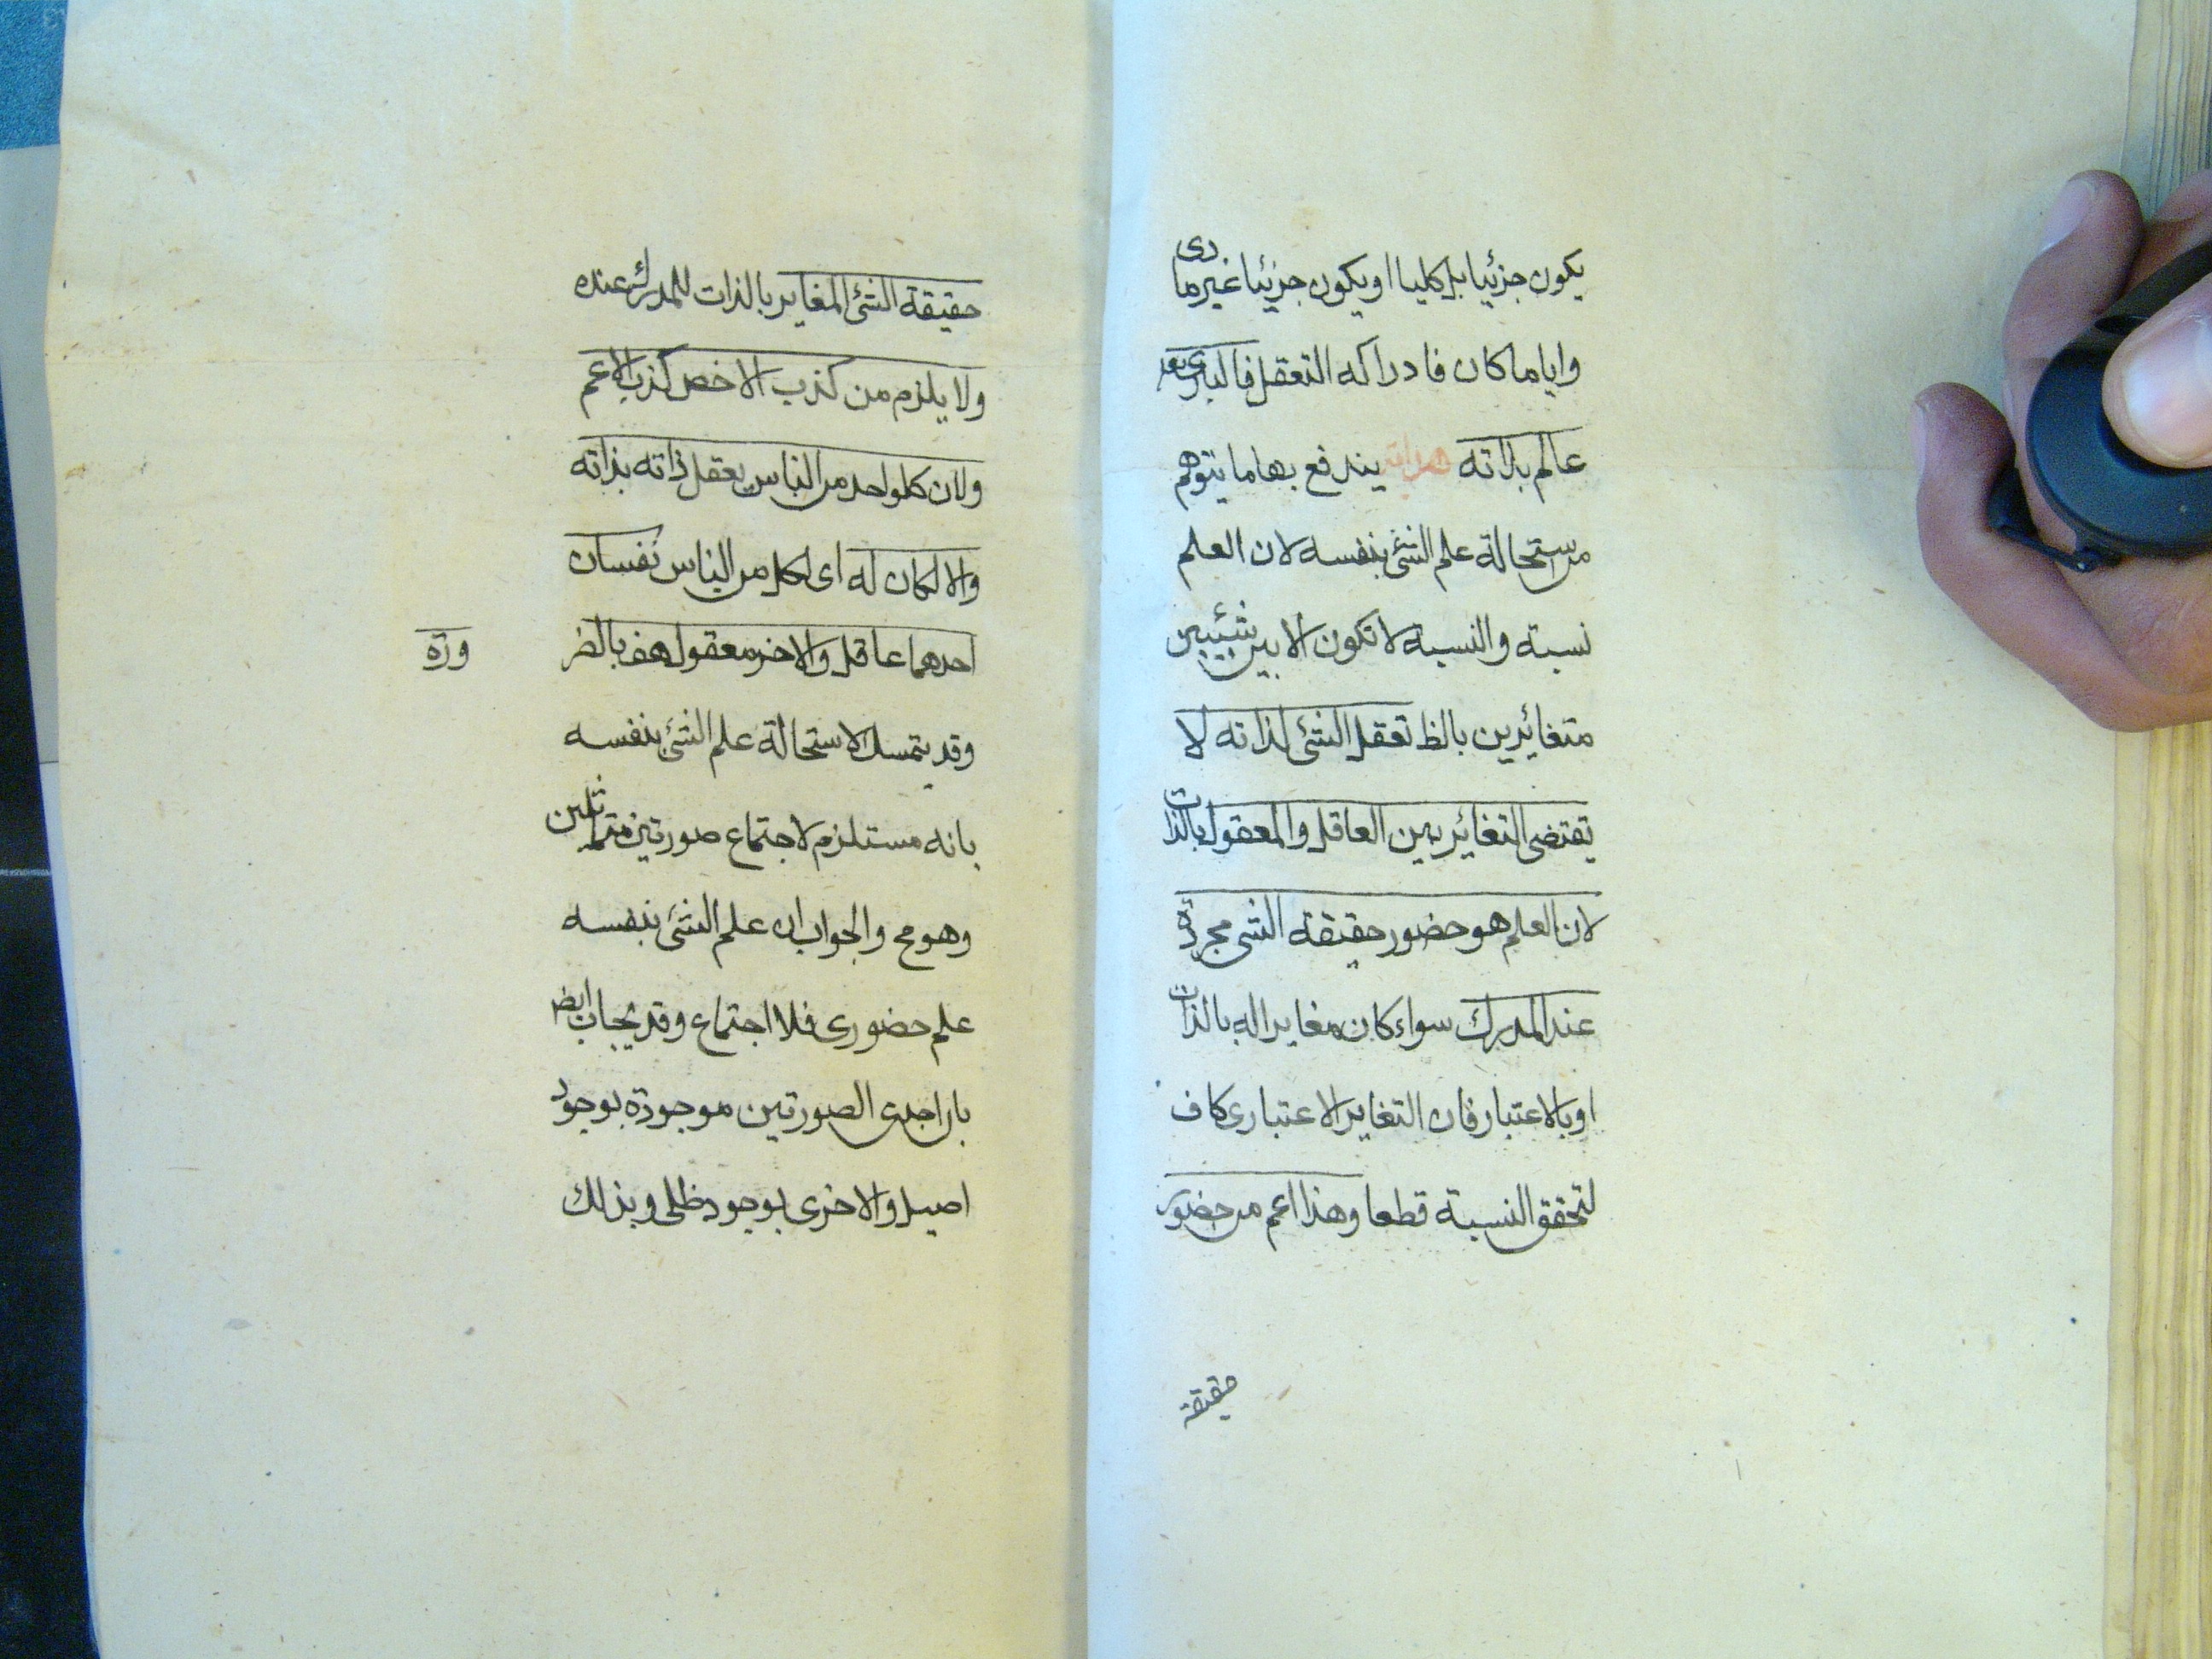 يكون جزئيا بل كليا او يكون جزئيا غير مادى
واياما كان فادراكه التعقل فالبارى تعه
عالم بذاته هداية يندفع بها ما يتوهم
من استحالة علم الشئ بنفسه لان العلم
نسبته والنسبة لا تكون الا بين شيئين
متغائرين بالظ تعقل الشئ لذاته لا
يقتضى التغائر بين العاقل والمعقول بالذات
لان العلم هو حضور حقيقة الشى مجردة
عند المدرك سواء كان مغايرا له بالذات
او بالاعتبار فان التغاير الاعتبارى كاف
لتحقق النسبة قطعا وهذا اعم من حضور
حقيقة
حقيقة الشئ المغاير بالذات للمدرك عنده
ولا يلزم من كذب الاخص كذب الاعم
ولان كل واحد من الناس يعقل ذاته بذاته
والا لكان له اى لكل من الناس نفسان
احدهما عاقل والاخر معقول هف بالضر ورة
وقد يتمسك لاستحالة علم الشئ بنفسه
بانه مستلزم لاجتماع صورتين متماثلين
وهو مح والجواب ان علم الشئ بنفسه
علم حضورى فلا اجتماع وقد يجاب ايض
بان احدى الصورتين موجودة بوجود
اصيل والاخرى بوجود ظلى وبذلك